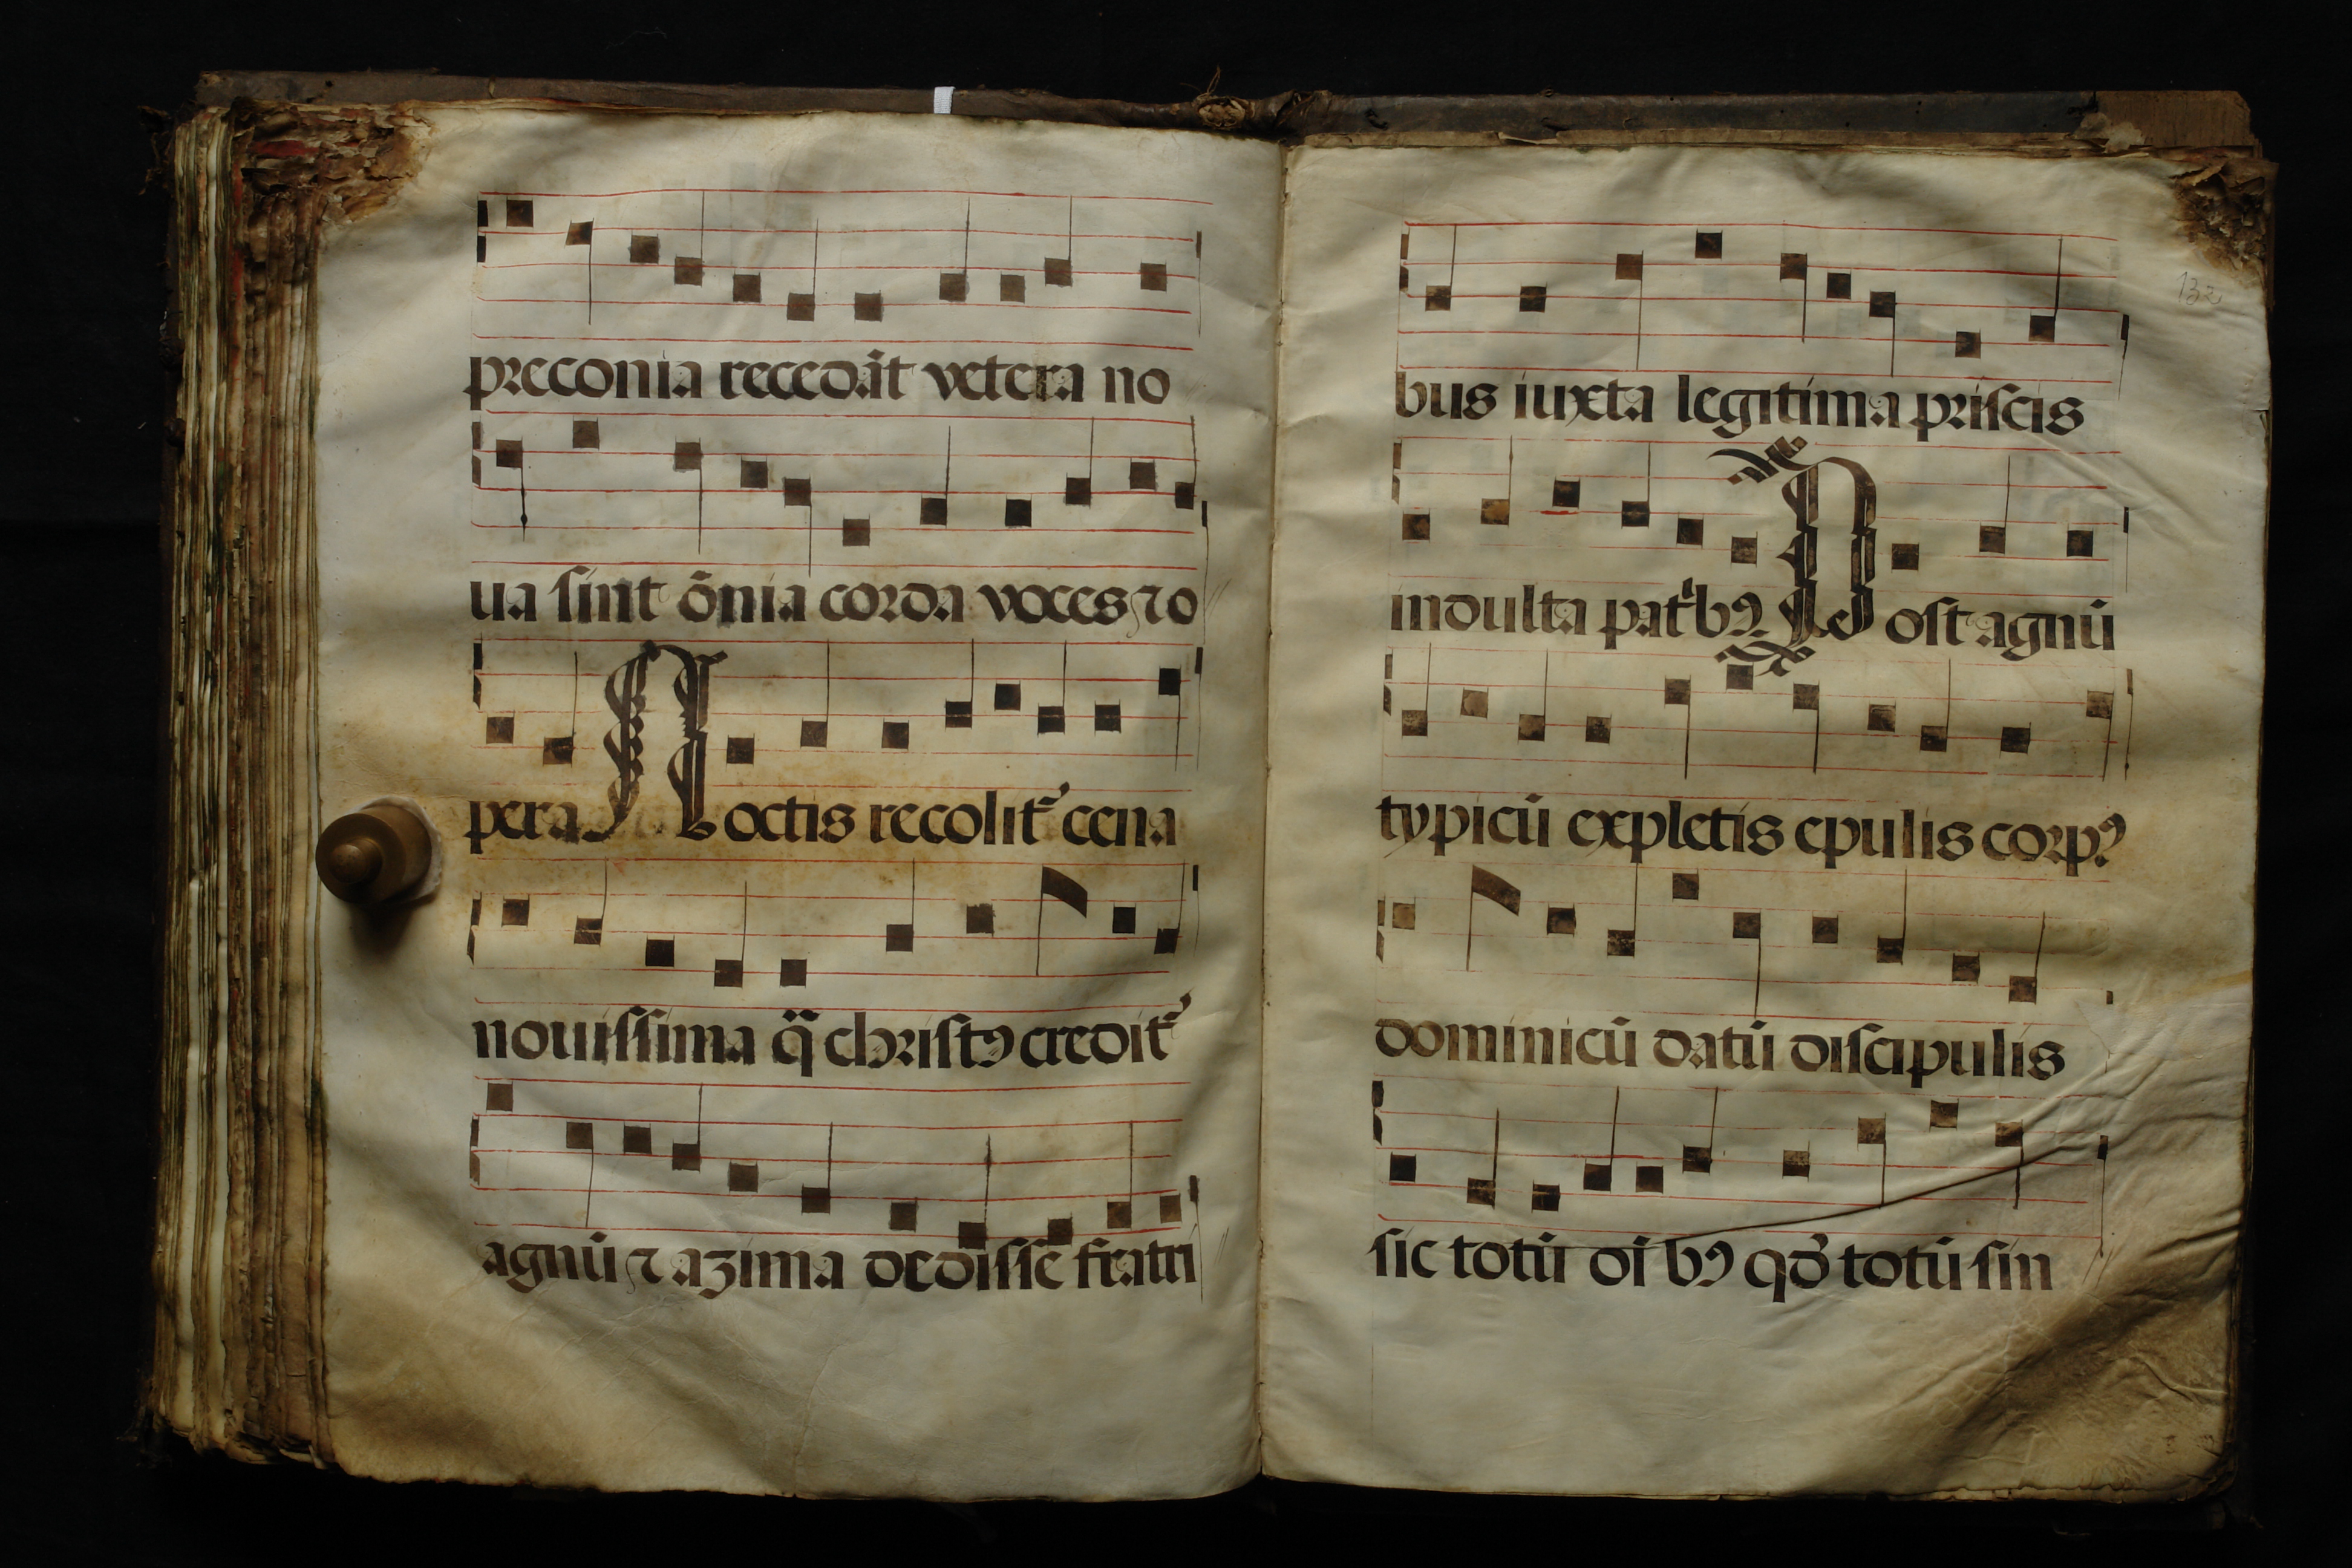 preconia recedāt vetera no
ua ſint ōnia corda voces ⁊ o
pera Noctis recolit᷑ cena
nouiſſima q̄ chriſtꝰ credit᷑
agnū ⁊ azima dediſſe fratri
132
bus iuxta legitima priſcis
indulta patⁱbꝰ Poſt agnū
typicū expletis epulis corpꝰ
dominicū datū diſcipulis
ſic totū oībꝰ qd̓ totū ſin